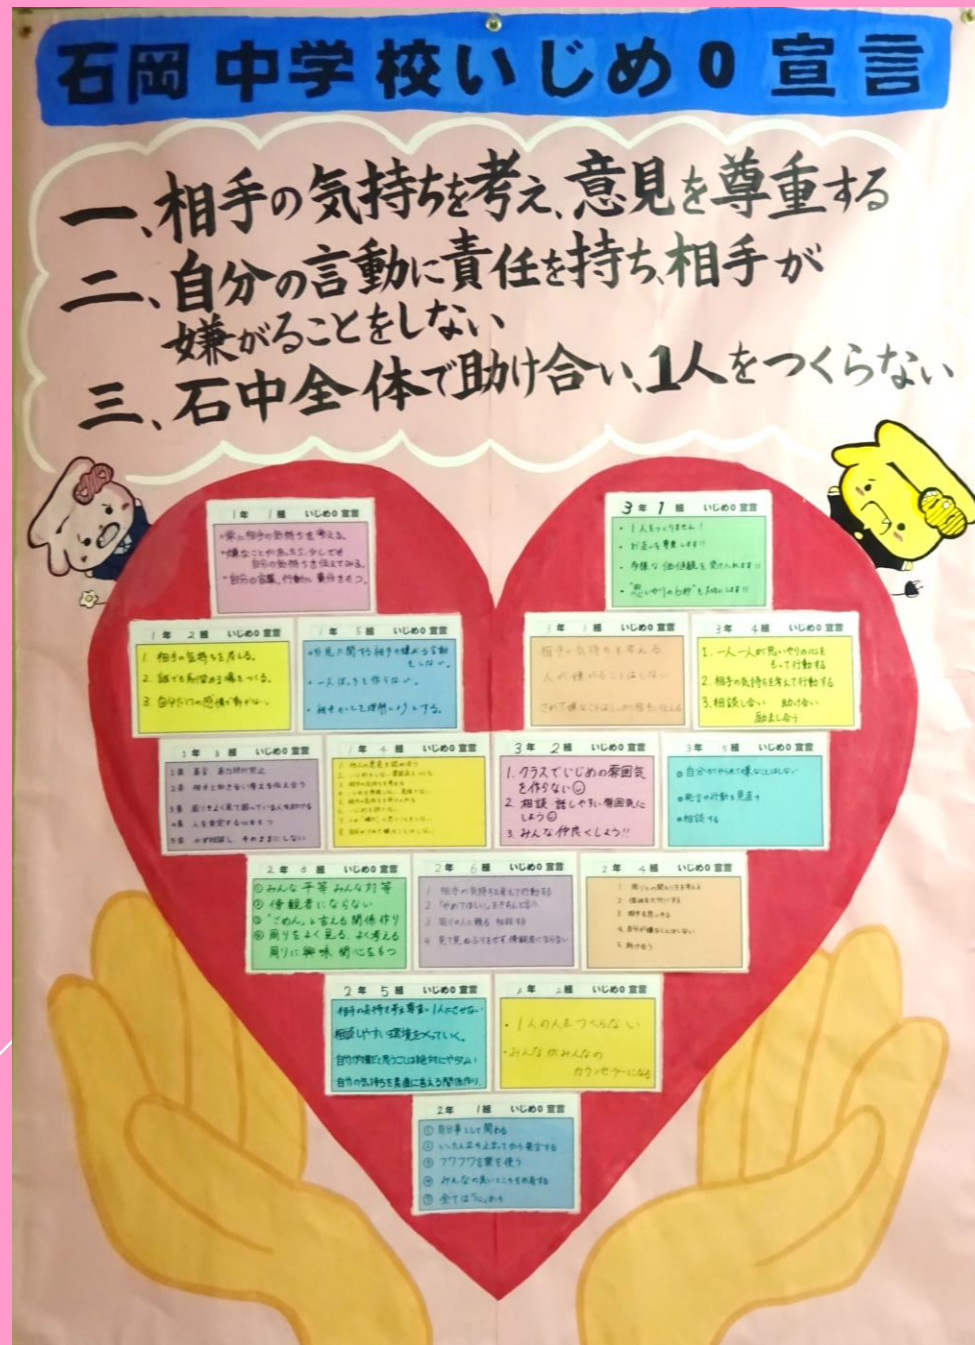 石岡中学校いじめ0宣言
一、相手の気持ちを考え、意見を尊重する
二、自分の言動に責任を持ち、相手が
嫌がることをしない
三、石中全体で助け合い、1人をつくらない
1年 1組 いじめ0宣言
・常に相手の気持ちを考える。
・嫌なことがあったら、少しでも
自分の気持ちを伝えてみる。
・自分の言葉、行動に責任をもつ。
3年 1組 いじめ0宣言
・1人をつくりません!
・お互いを尊重します!!
・多様な価値観を受け入れます!!
・"思いやりの6秒"を大切にします!!
1年 2組 いじめ0宣言
1. 相手の気持ちを考える。
2. 誰でも馴染める場をつくる。
3. 自分だけの感情で動かない。
1年 5組 いじめ0宣言
・外見に関する相手の嫌がる言動
をしない。
・一人ぼっちを作らない。
・相手のことを理解しようとする。
3年 3組 いじめ0宣言
相手の気持ちを考える
人が嫌がることはしない
されて嫌なことはしっかり相手に伝える
3年 4組 いじめ0宣言
1. 一人一人が思いやりの心を
もって行動する
2. 相手の気持ちを考えて行動する
3. 相談し合い 助け合い
励まし合う
1年 3組 いじめ0宣言
1年 4組 いじめ0宣言
1. 他人の意見を認め合う
3年 2組 いじめ0宣言
1. クラスでいじめの雰囲気
を作らない
2. 相談 話しやすい雰囲気に
しよう
3. みんな仲良くしよう!!
3年 5組 いじめ0宣言
・自分がやられて嫌なことはしない
・発言や行動を見直す
・相談する
2年 3組 いじめ0宣言
① みんな平等 みんな対等
② 傍観者にならない
③ 「ごめん」と言える関係作り
④ 周りをよく見る、よく考える
周りに興味 関心をもつ
2年 6組 いじめ0宣言
1 相手の気持ちを考えて行動する
2 「やめてほしい」をきちんと言う
3 周りの人に頼る 相談する
4 見て見ぬふりをせず、傍観者にならない
2年 4組 いじめ0宣言
3. 相手を思いやる
4. 自分が嫌なことはしない
5. 助け合う
2年 5組 いじめ0宣言
相手の気持ちを考え尊重し1人にさせない
相談しやすい環境をつくっていく。
自分が嫌だと思うことは絶対にやらない
自分の気持ちを素直に言える関係作り
2年 2組 いじめ0宣言
・1人の人をつくらない
・みんながみんなの
カウンセラーになる
2年 1組 いじめ0宣言
① 自分事として関わる
② いったん立ち止まってから発言する
③ フワフワ言葉を使う
④ みんなの良いところを発見する
⑤ 全ては「心」から